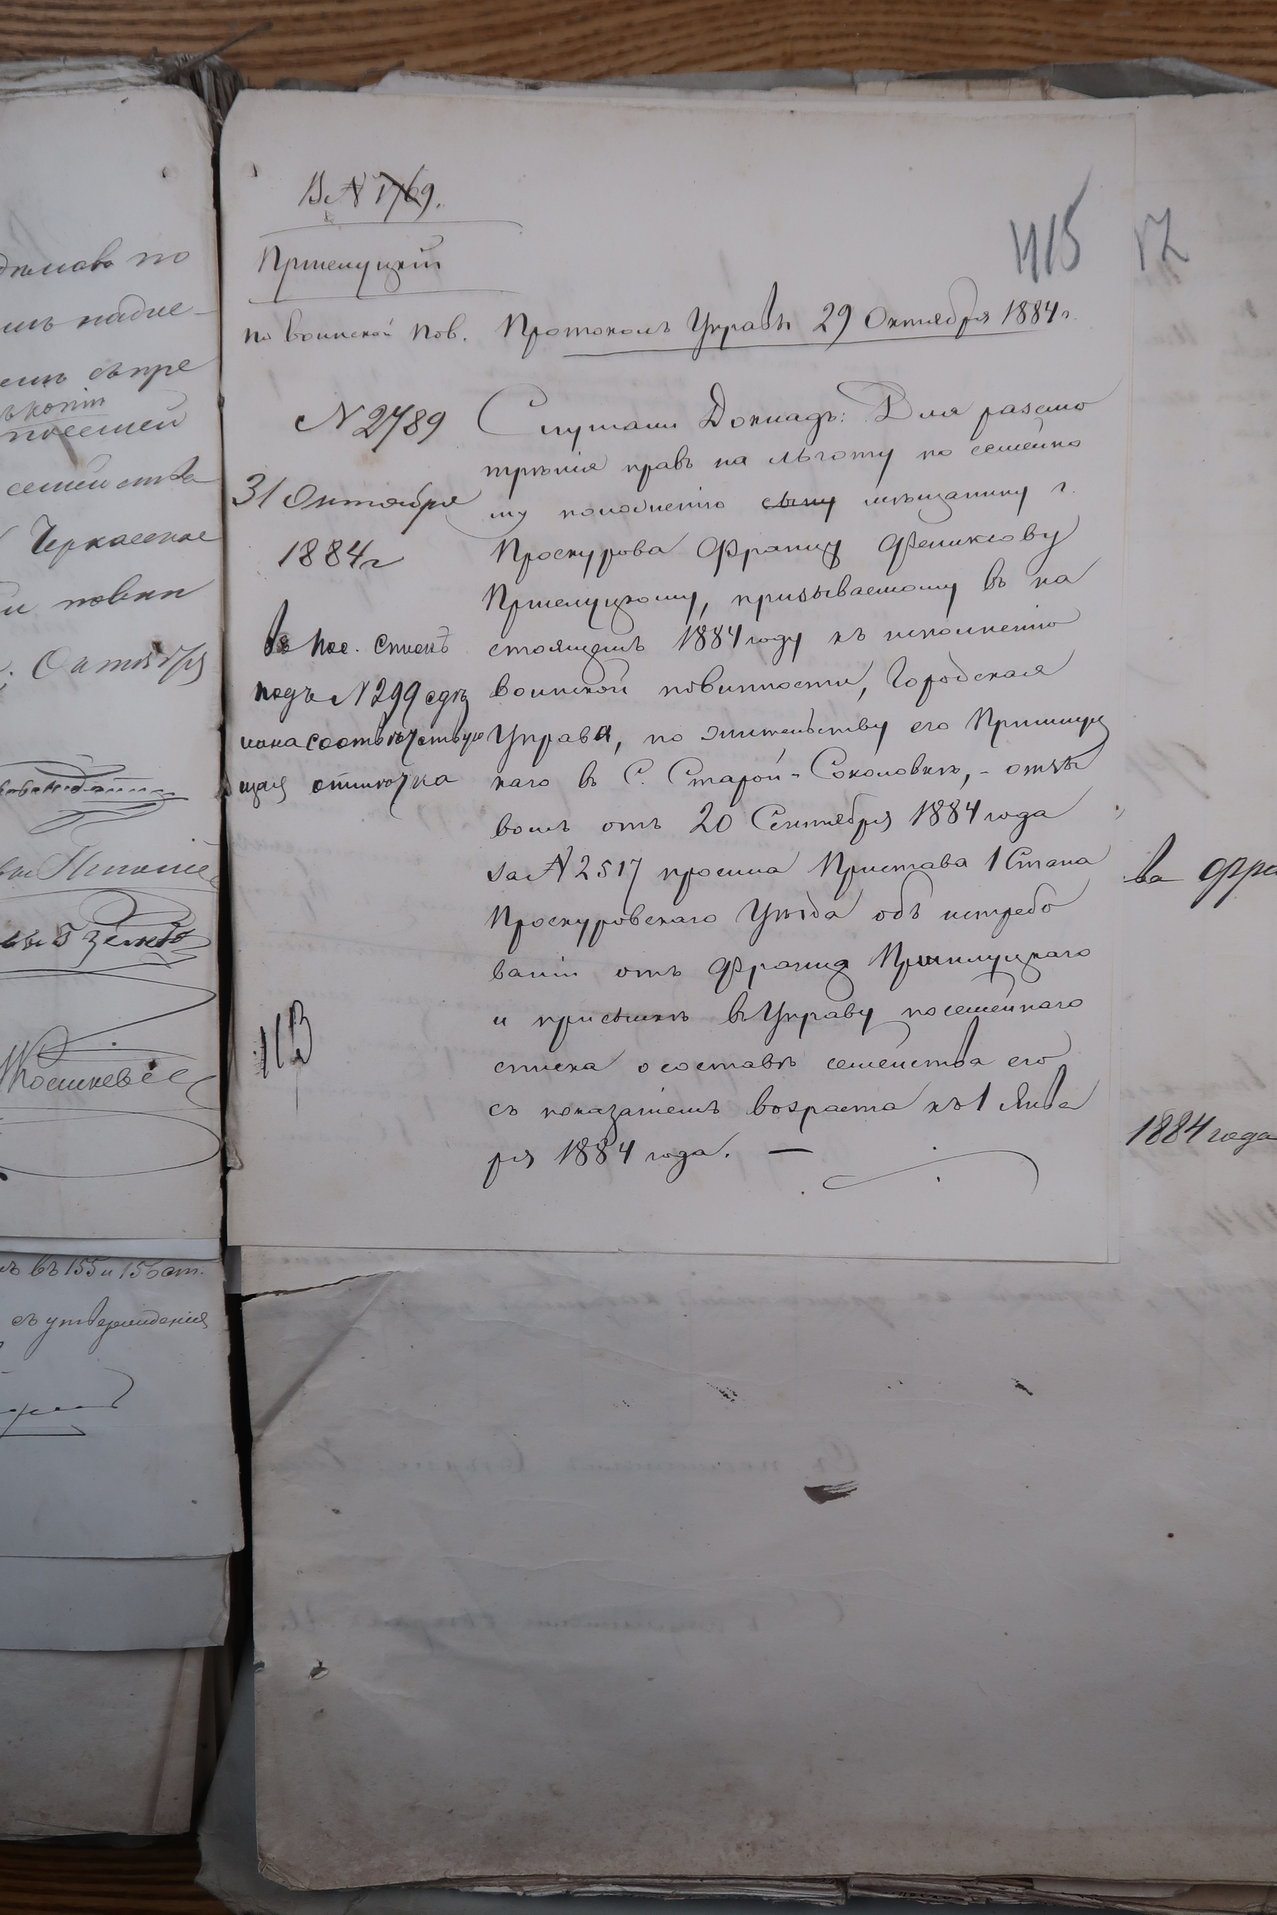 В. N 1769.
415
Пршелуцкій
по воинской пов.
Протоколъ Управы 29 Октября 1884 г.
N 2789
31 Октября
1884 г
въ пос. списк
подъ N 299 сдѣ
лана соотвѣтствую
щая отмѣтка
Слушали Докладъ: Для разсмо
трѣнія правъ на льготу по семейно
му положенію сыну мѣщанину г.
Проскурова Францу Феликсову
Пршелуцкому, призываемому въ на
стоящемъ 1884 году къ исполненію
воинской повинности, Городская
Управа, по жительству его Пршилуц
каго въ С. Старой-Соколовкѣ, - отзы
вомъ отъ 20 Сентября 1884 года
за N 2517 просила Пристава 1 Стана
Проскуровскаго Уѣзда объ истребо
ваніи отъ Франца Пршилуцкаго
и присылкѣ въ Управу посемейнаго
списка о составѣ семейства его
съ показаніемъ возраста къ 1 Янва
ря 1884 года. —
ва Фра
1884 года
Черкаское
Октября
въ 155 и 156 ст.
съ утвержденія